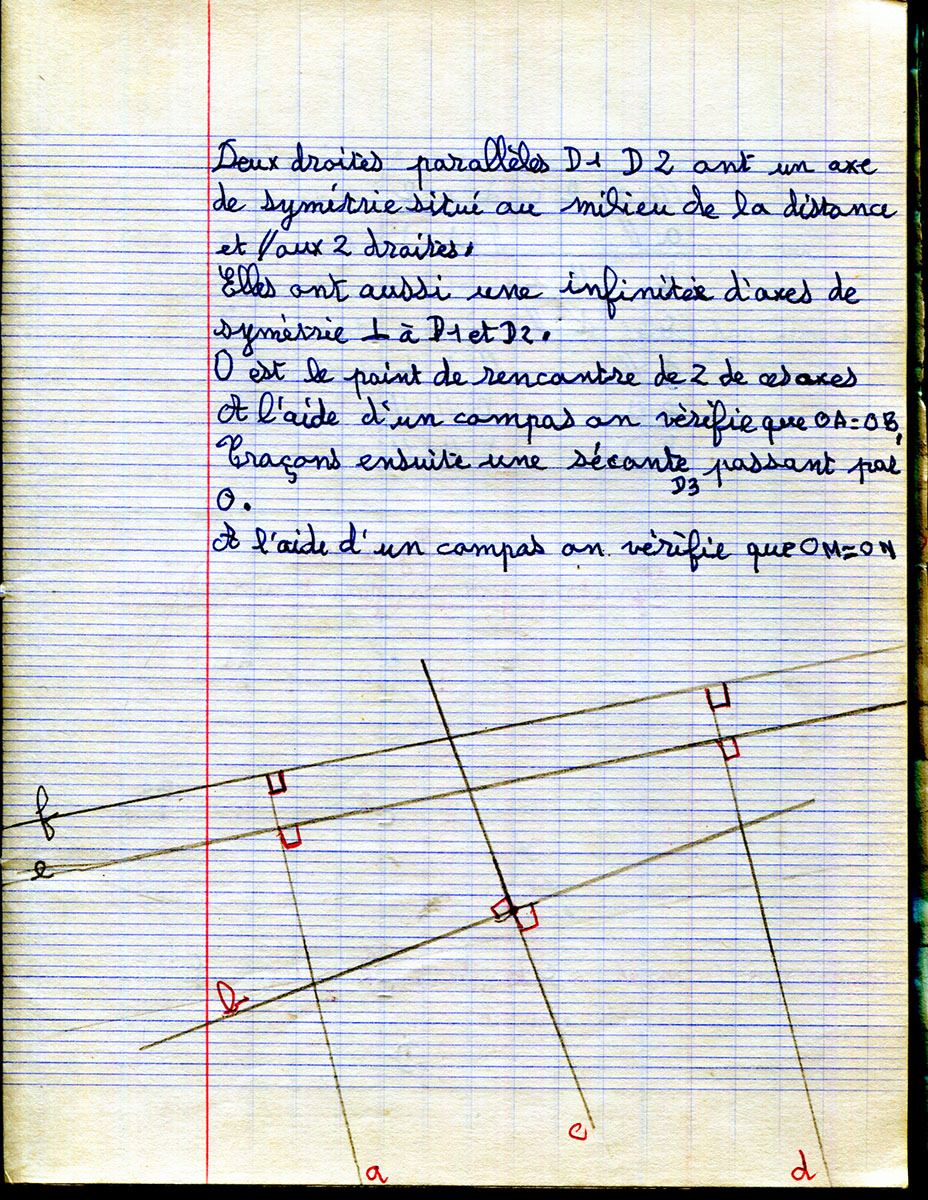 Deux droites parallèles D1 D2 ont un axe
de symétrie situé au milieu de la distance
et // aux 2 droites.
Elles ont aussi une infinitée d'axes de
symétrie ⊥ à D1 et D2.
O est le point de rencontre de 2 de ces axes
A l'aide d'un compas on vérifie que OA=OB,
Traçons ensuite une sécante passant par
D3
O.
A l'aide d'un compas on vérifie que OM=ON
f
e
b
c
a
d